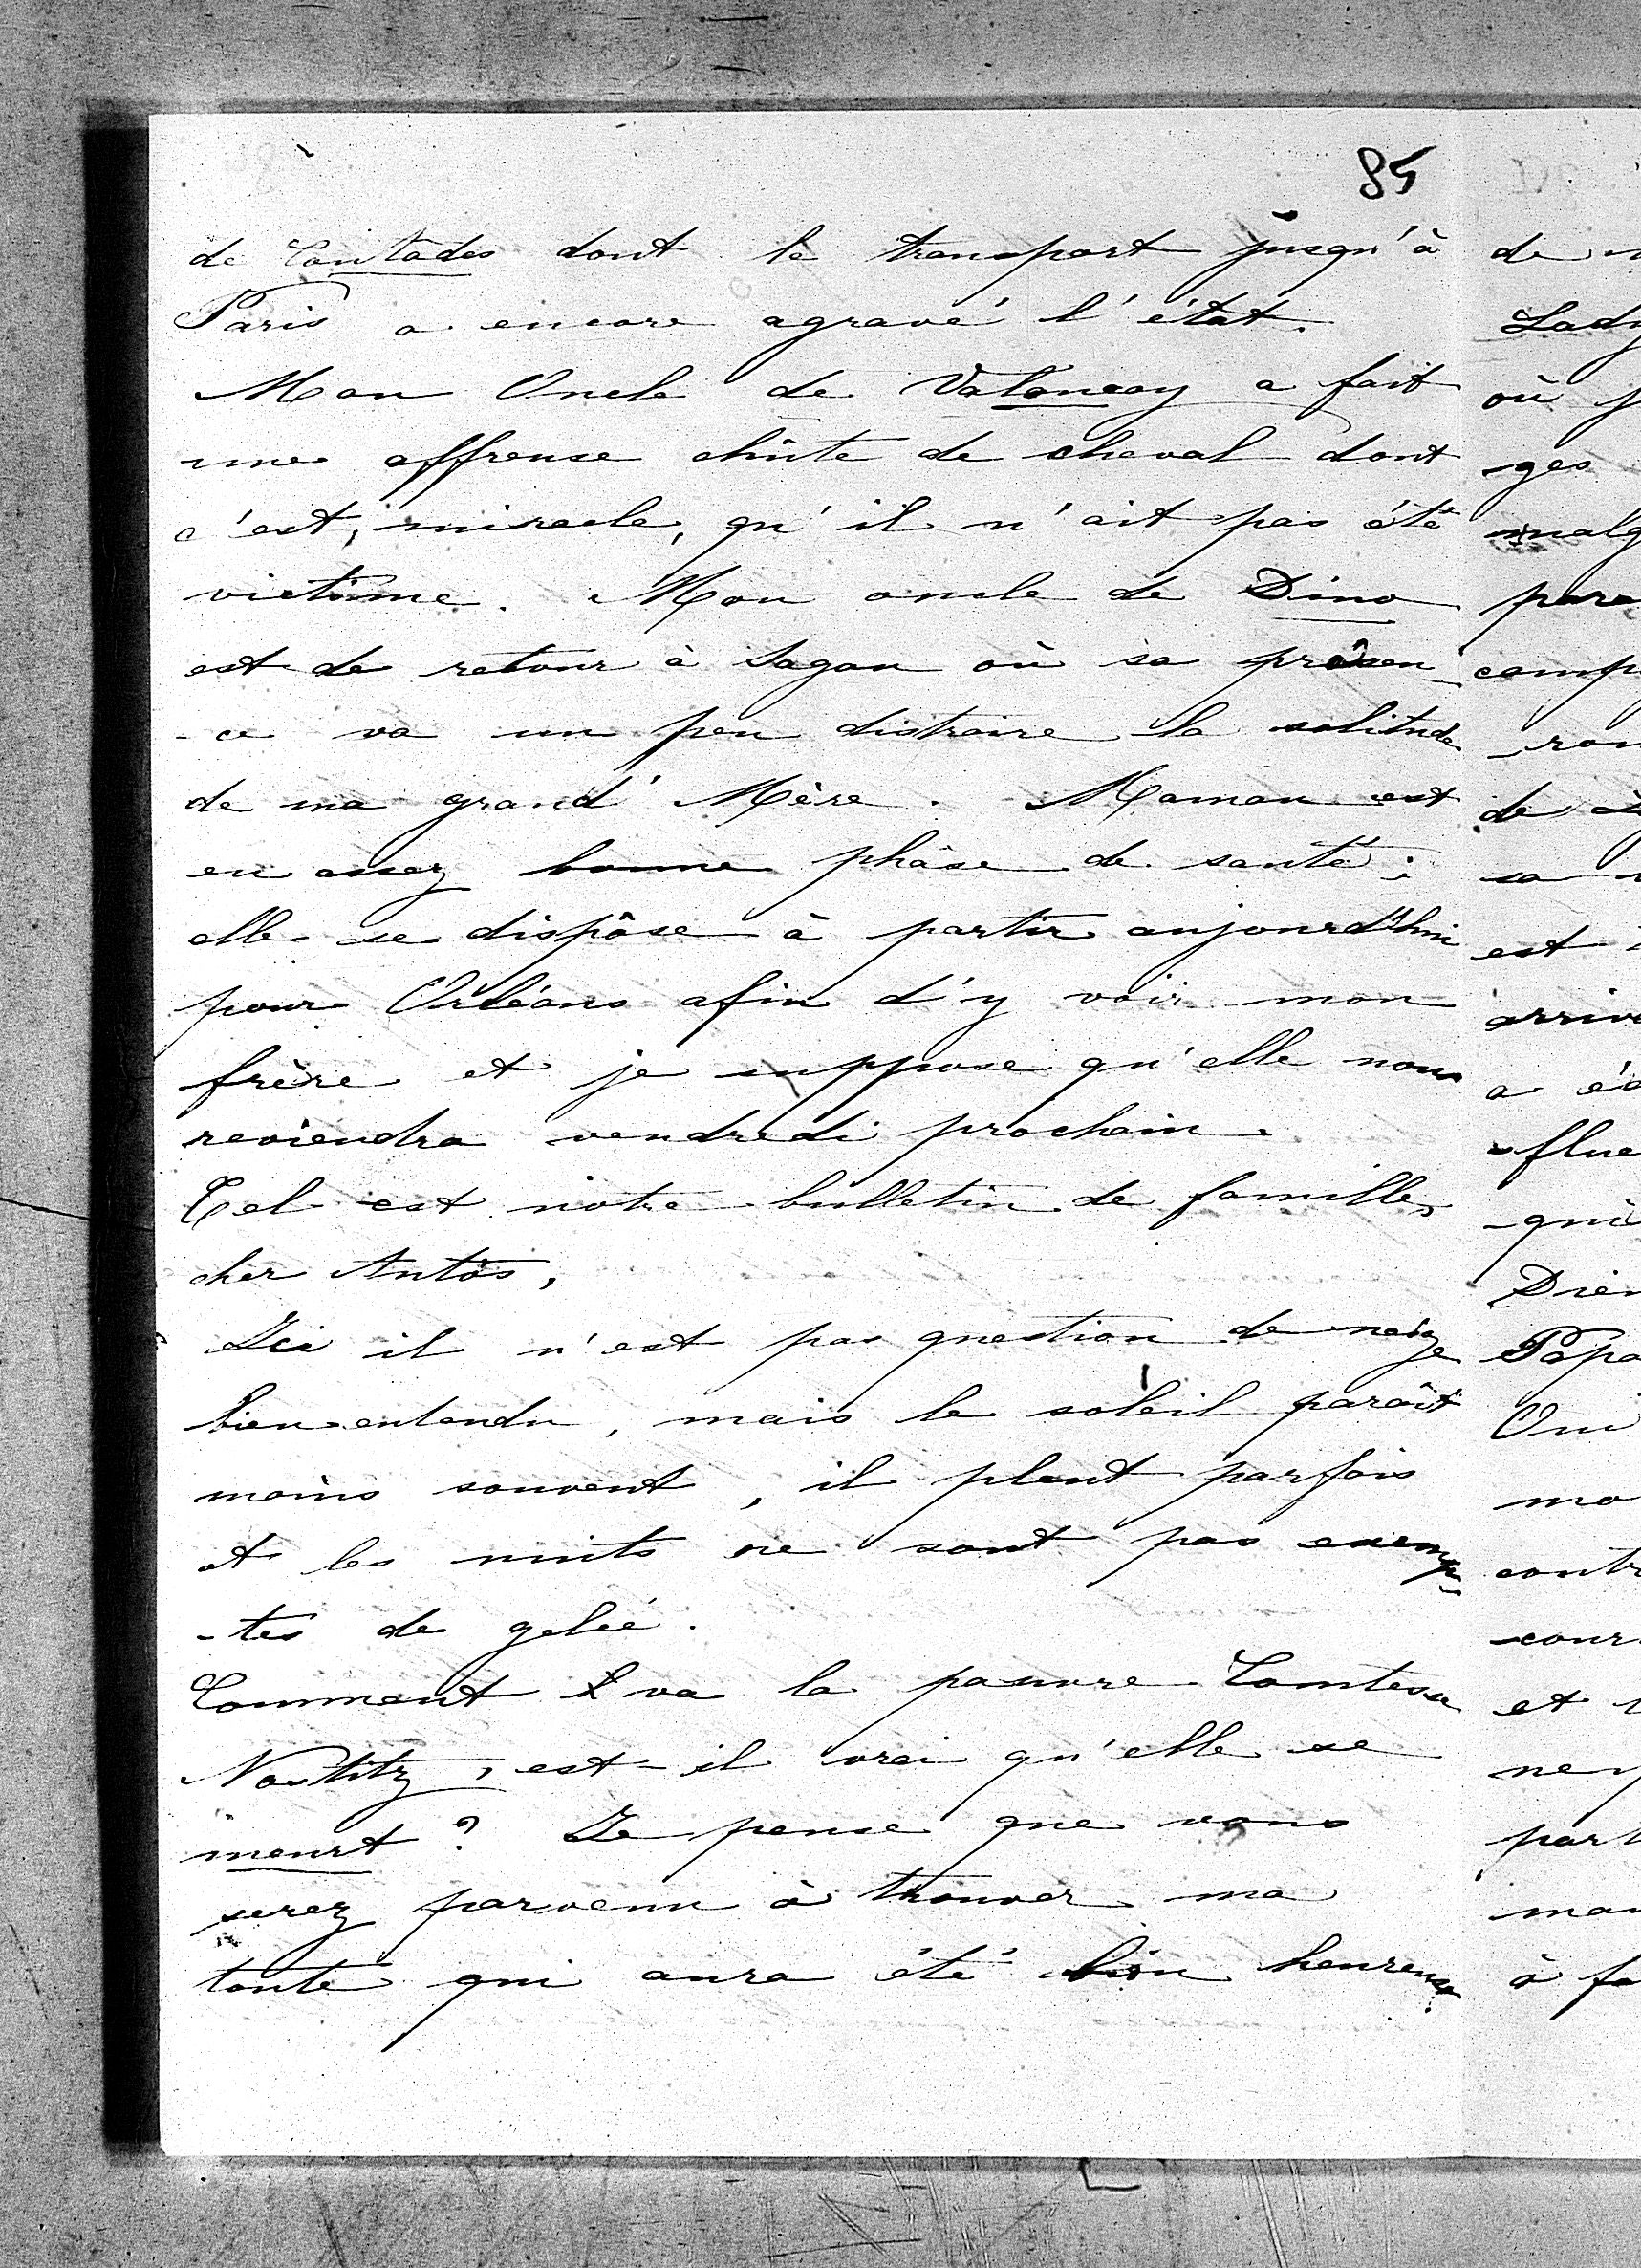 85
de Contades dont le transport jusqu'à
Paris a encore agravé l'état.
Mon Oncle de Valençay a fait
une affreuse chûte de cheval dont
c'est, miracle, qu'il n'ait pas été
victime. Mon oncle de Dino
est de retour à Sagan où sa présen
-ce va un peu distraire la solitude
de ma grand' Mère. Maman est
en assez bonne phâse de santé;
elle se dispôse à partir aujourd'hui
pour Orléans afin d'y voir mon
frère et je suppose qu'elle nous
reviendra vendredi prochain.
Tel est notre bulletin de famille,
cher Antôs,
Ici il n'est pas question de neige
bien entendu, mais le soleil paraît
moins souvent, il pleut parfois
et les nuits ne sont pas exemp-
-tes de gelée.
Comment va la pauvre Comtesse
Nostitz, est-il vrai qu'elle se
meurt? Je pense que vous
serez parvenu à trouver ma
tante qui aura été bien heureuse
de
Lady
où j
-ges
malg
para
comp
de
sa
est
arriv
a
-flue
-qui
Papa
Oui
mo
contr
cour
et
part
à fa